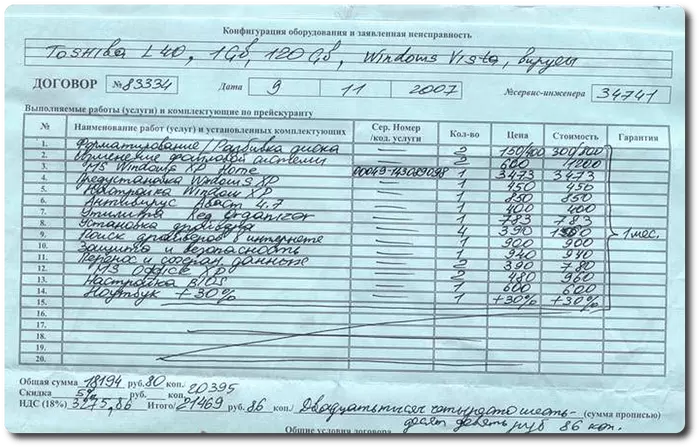 Конфигурация оборудования и заявленная неисправность
Toshiba L40, 1Gb, 120 Gb, Windows Vista, вирусы
ДОГОВОР №83334 Дата 9 11 2007 №сервис-инженера 34741
Выполняемые работы (услуги) и комплектующие по прейскуранту
№ Наименование работ (услуг) и установленных комплектующих Сер. Номер /код. услуги Кол-во Цена Стоимость Гарантия
1. Форматирование/Разбивка диска 2 150/400 300/800
2. Изменение файловой системы 2 600 1200
3. MS Windows XP Home 1 3473 3473
4. Предустановка Windows XP 1 450 450
5. Настройка Windows XP 1 850 850
6. Антивирус Аваст 4.7 1 400 400
7. Утилита Reg Organizer 1 783 783
8. Установка драйвера 4 390
9. Поиск драйверов в интернете 1 900 900 1 мес.
10. Защита и безопасность 1 940 940
11. Перенос и сохран. данных 2 390 780
12. MS Office XP 2 480 960
13. Настройка BIOS 1 600 600
14. Ноутбук +30% 1 +30% +30%
15.
16.
17.
18.
19.
20.
Общая сумма 18194 руб. 80 коп. 20395
Скидка 5% руб. коп.
НДС (18%) 3275,86 Итого/21469 руб. 86 коп./ Двадцать тысяч четыреста шесть- (сумма прописью)
десят девять руб 86 коп.
Общие условия договора